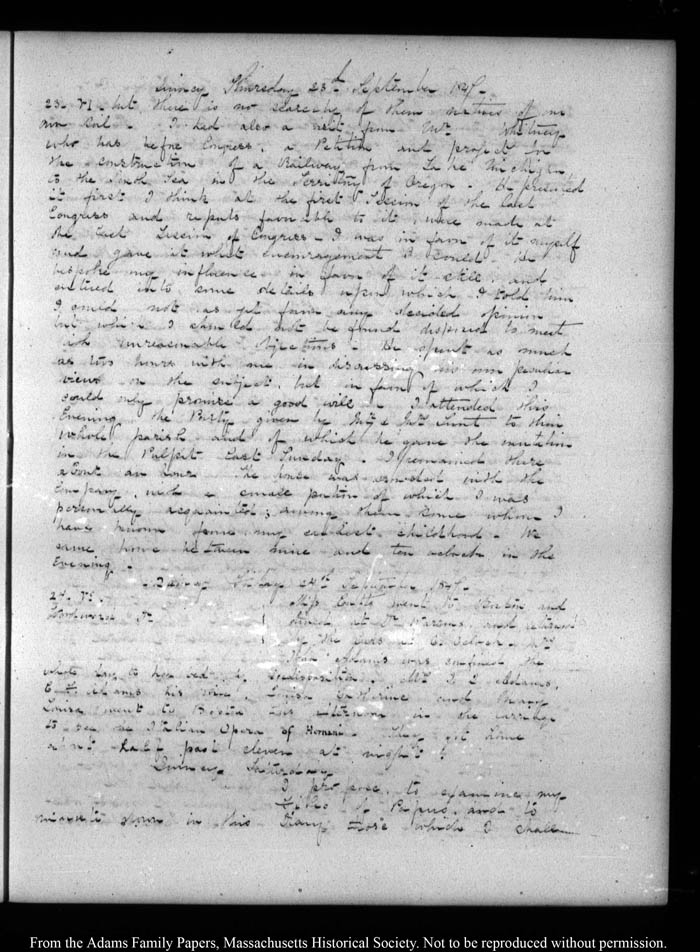 Quincy Thursday 23th September 1847.
23. VI. but there is no scarcity of them natives of our
own soil. I had also a visit from Mr. Whitney
who has before Congress, a Petition and project for
the construction of a Railway from Lake Michigan
to the South Sea in the Territory of Oregon. He presented
it first I think at the first Session of the last
Congress and reports favorable to it were made at
the last Session of Congress. I was in favor of it myself
and gave it what encouragement I could. He
bespoke my influence in favor of it still, and
entered into some details upon which I told him
I could not as yet form any decided opinion
but which I should not be found disposed to meet
with unreasonable objections. He spent as much
as two hours with me in discussing his own peculiar
views on the subject, but in favor of which I
could only promise a good will. I attended this
Evening the Party given by Mr. & Mrs. Lunt to their
whole parish and of which he gave the invitation
in the Pulpit last Sunday. I remained there
about an hour. The house was crowded with the
Company, with a small portion of which I was
personally acquainted; among them some whom I
have known from my earliest childhood. We
came home between nine and ten oclock in the
Evening.
Quincy Friday 24th September 1847.
24. VI.
Miss Cutts went to Boston and
dined at Dr. and returned
by the Cars at 6. oclock. Mrs
Adams was confined the
whole day to her bed by indisposition. Mr I. H. Adams,
his wife, Louisa Catherine and Mary
Louisa went to Boston this afternoon in the carriage
to see the Italian Opera of Hernani. They got home
about half past eleven at night.
Quincy Saturday
I propose to examine my
Files of Papers, and to
minute down in this Diary those which I shall
From the Adams Family Papers, Massachusetts Historical Society. Not to be reproduced without permission.